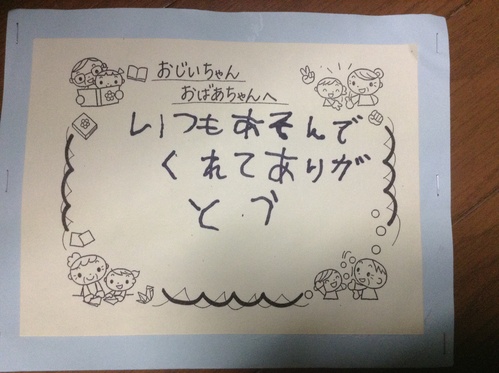 おじいちゃん
おばあちゃんへ
いつもあそんで
くれてありが
とう